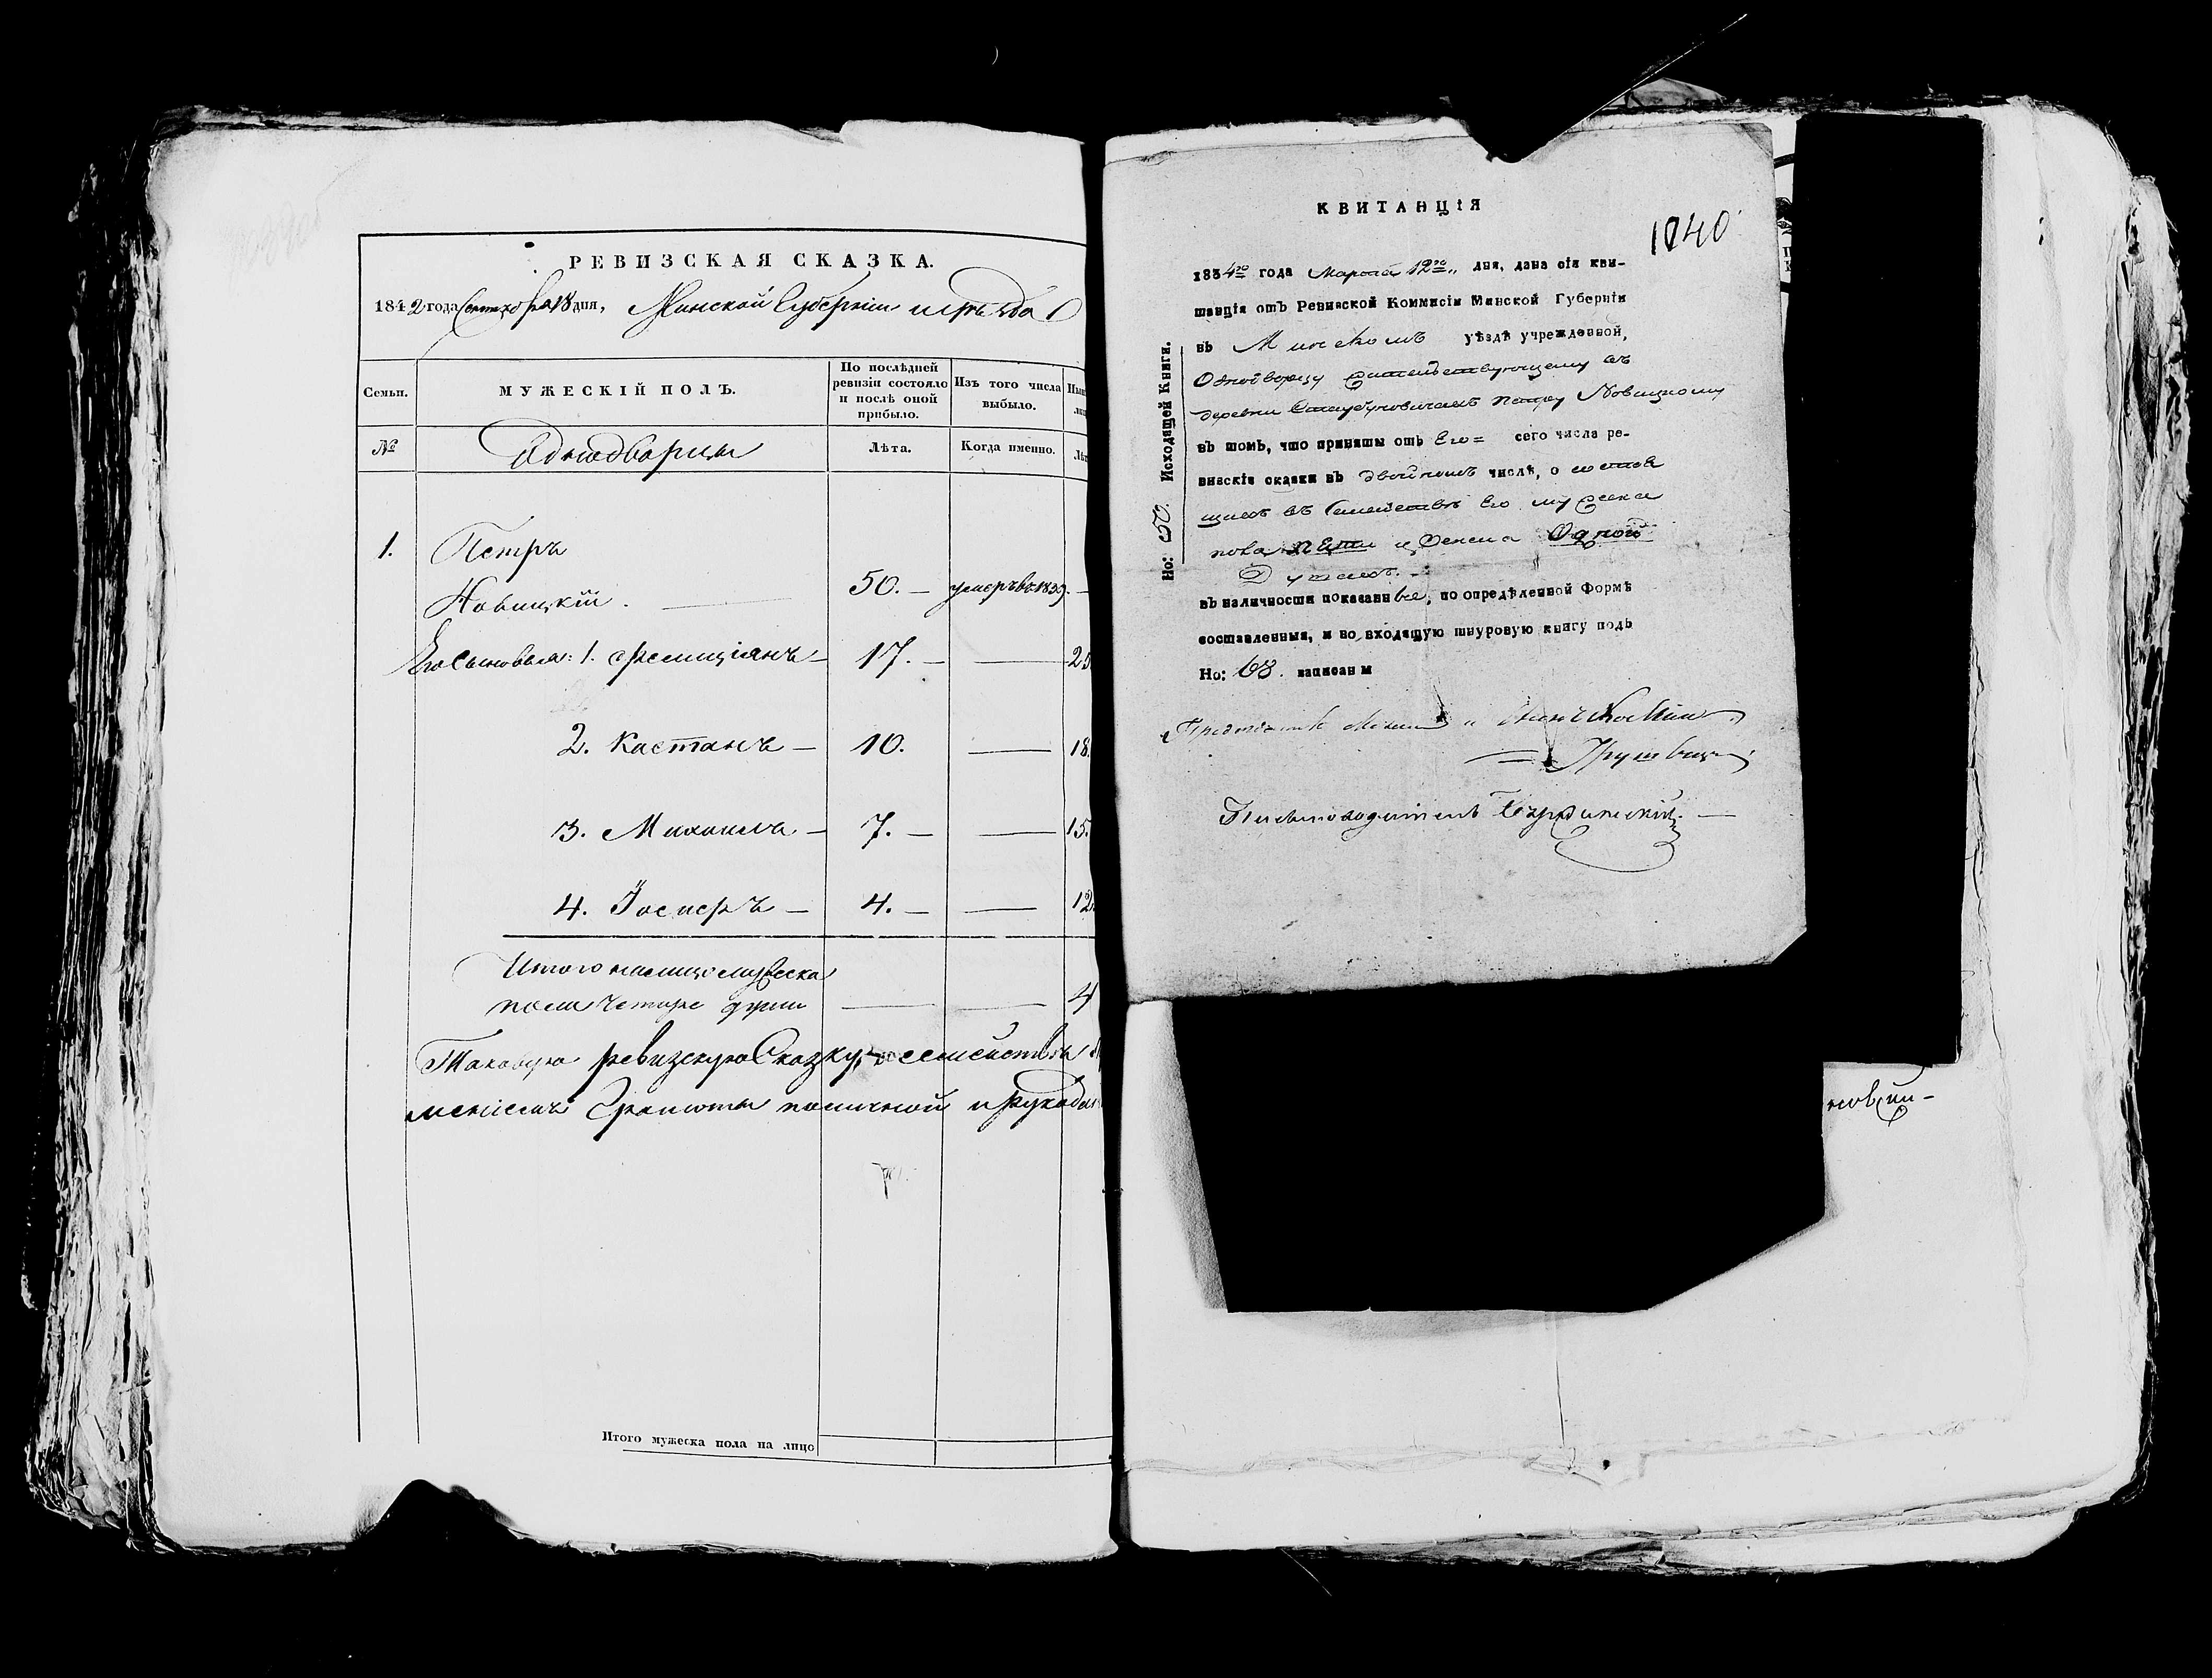 РЕВИЗСКАЯ СКАЗКА.
1842 года Сентября 18 дня, Минской Губернии и уѣзда
Семьи.
МУЖЕСКІЙ ПОЛЪ.
По послѣдней ревизіи состояло и послѣ оной прибыло.
Изъ того числа выбыло.
№
Однодворцы
Лѣта.
Когда именно.
1. Петръ
Новицкій. 50. — умеръ въ 1839. —
Его Сыновья: 1. Фелиціянъ — 17. — — 25
2. Каетанъ — 10. — 18.
3. Михаилъ — 7. — — 15.
4. Іосифъ — 4. — — 12.
Итого налицо мужеска
пола Четыре души — — 4
Таковую ревизскую Сказку о семействѣ
мѣніемъ Грамоты
Итого мужеска пола на лицо
КВИТАНЦІЯ
1040
1834го года Марта 12го дня, дана сія кви-
танція отъ Ревизской Коммисіи Минской Губерніи
въ Минскомъ уѣздѣ учрежденной,
Однодворцу Жительствующему въ
деревни Петру Новицкому
въ томъ, что приняты отъ Его = сего числа ре-
визскія сказки въ двойномъ числѣ, о состоя
щихъ въ Семействѣ Его мужеска
пола пяти и женска Одной
Душахъ.
въ наличности показанные, по опредѣленной Формѣ
составленныя, и во входящую шнуровую книгу подъ
Но: 68. записаны
Но: 50. Исходящей Книги.
Письмоводитель